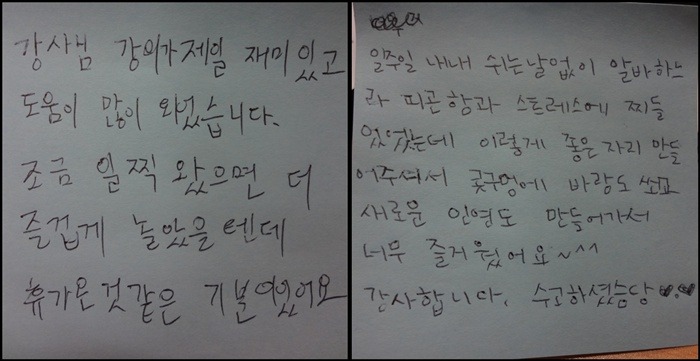 강사님 강의가 제일 재미있고
도움이 많이 되었습니다.
조금 일찍 왔으면 더
즐겁게 놀았을텐데
휴가온것같은 기분이었어요
일주일 내내 쉬는날없이 알바하느
라 피곤함과 스트레스에 찌들
었었는데 이렇게 좋은 자리 만들
어주셔서 콧구멍에 바람도 쐬고
새로운 인연도 만들어가서
너무 즐거웠어요~^^
감사합니다. 수고하셨슴당♥.♥